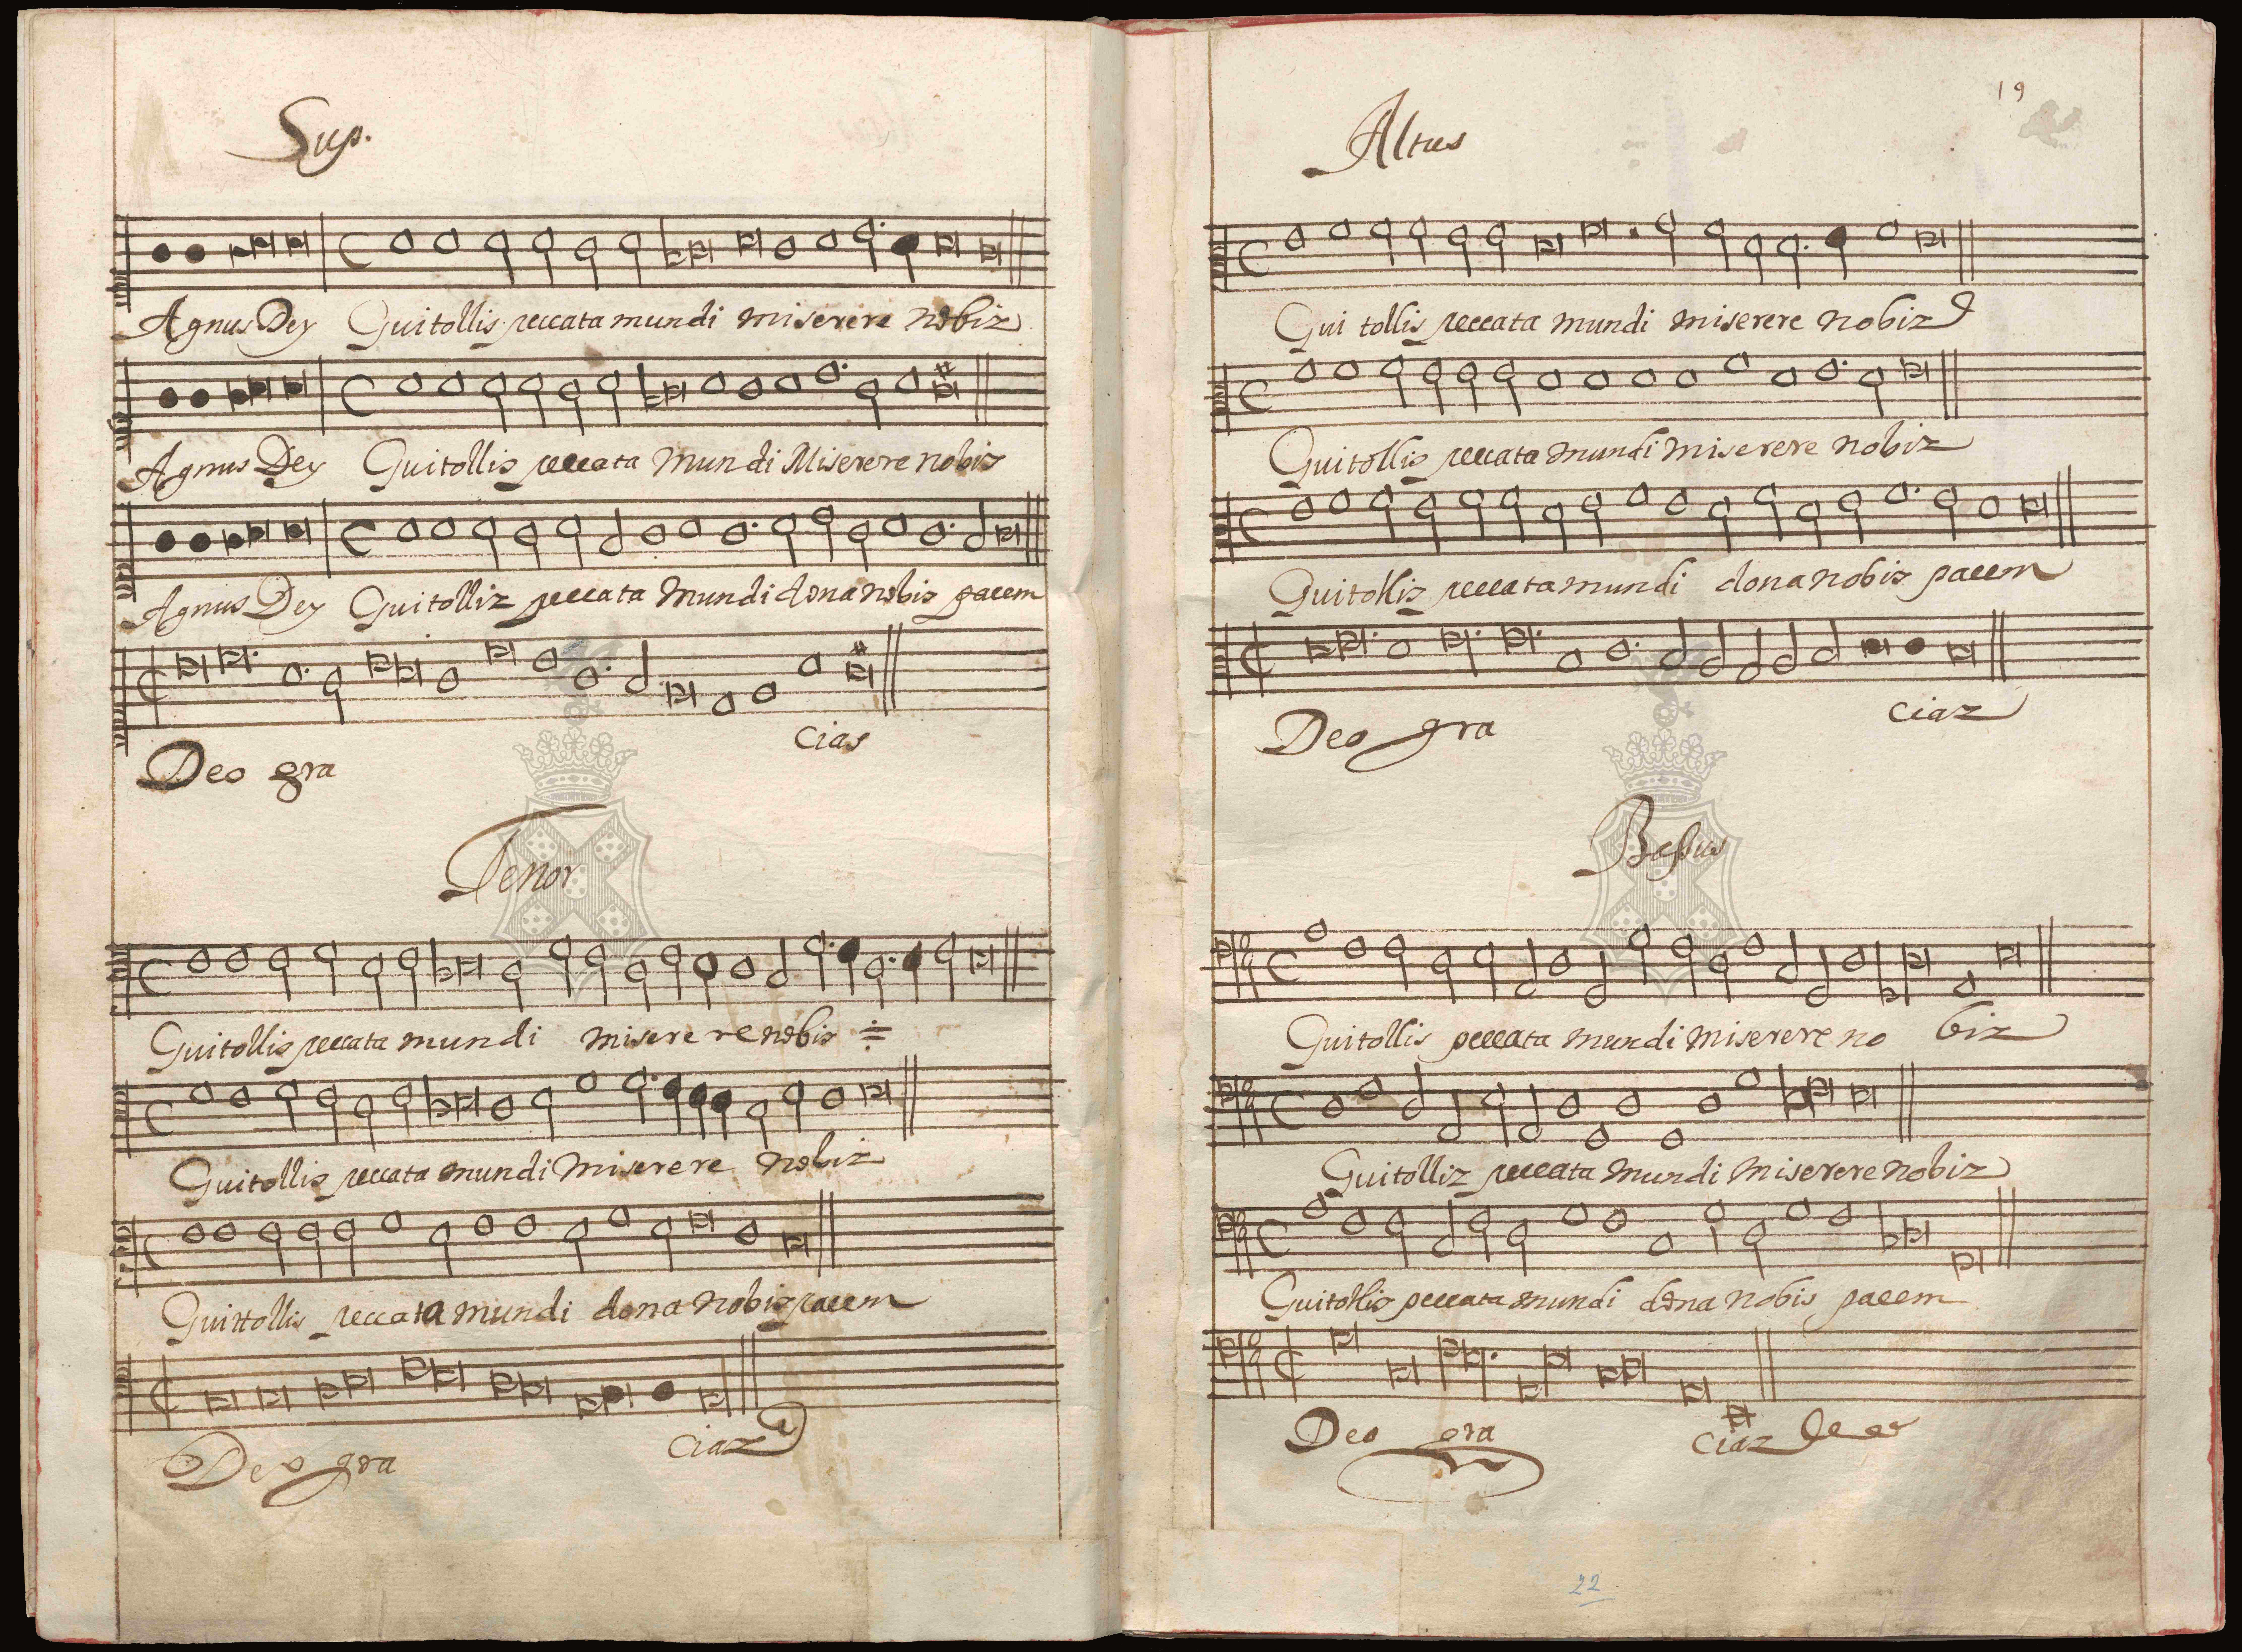 Sup.
Agnus Dey Qui tollis peccata mundi miserere nobiz
Agnus Dey Qui tollis peccata mundi Miserere nobis
Agnus Dey Qui tolliz peccata mundi dona nobis pacem
cias
Deo gra
Tenor
Qui tollis peccata mundi miserere nobis
Qui tollis peccata mundi miserere nobiz
Quittollis peccata mundi dona nobis pacem
Deo gra ciaz
19
Altus
Qui tollis peccata mundi miserere nobiz
Qui tollis peccata mundi miserere nobiz
Qui tollis peccata mundi dona nobis pacem
Deo gra ciaz
Bassus
Qui tollis peccata mundi miserere no biz
Qui tolliz peccata mundi miserere nobiz
Qui tollis peccata mundi dona nobis pacem
Deo gra ciaz
22